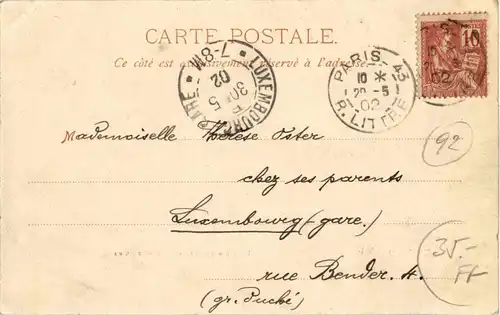 CARTE POSTALE.
Ce côté est exclusivement réservé à l'adresse.
LUXEMBOURG GARE 7-8M
30 5
02
PARIS 43
10 *
29-5
02
R. LITTRÉ
10
02
92
Mademoiselle Thérèse Oster
chez ses parents
Luxembourg (gare.)
rue Bender 4.
(gr. Duché)
35.-
FF